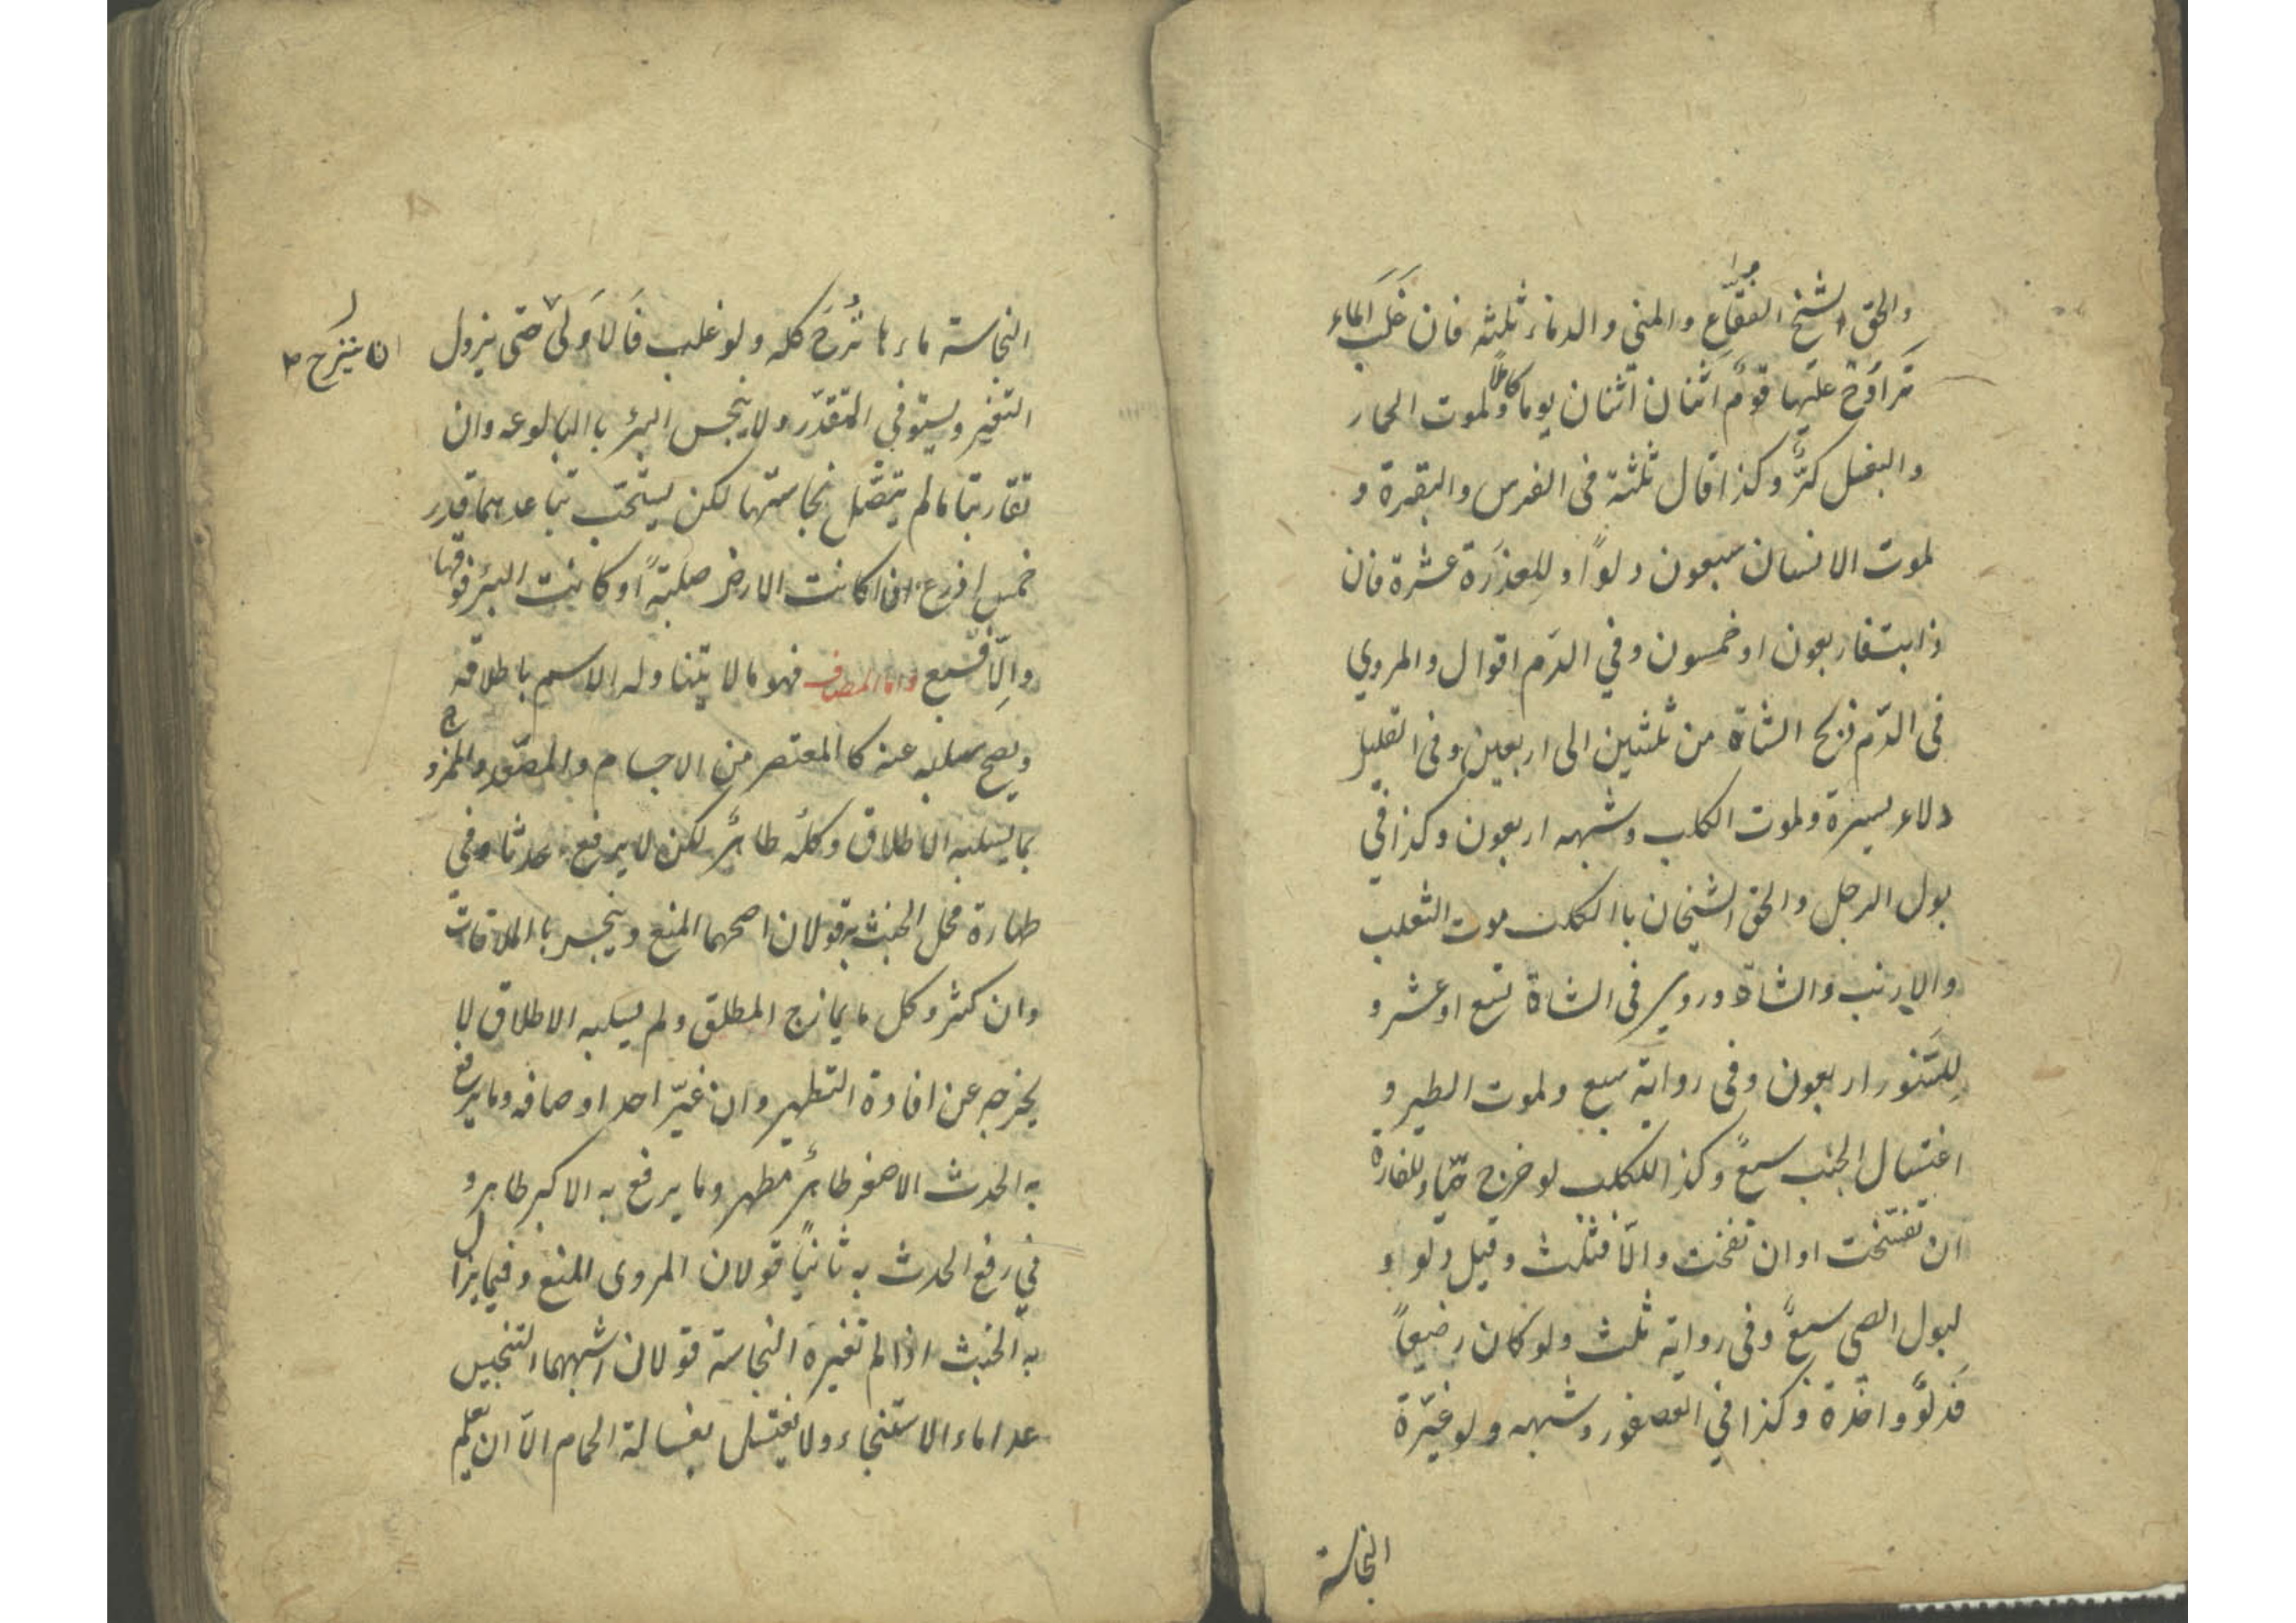 والحق الشيخ الفقّاع والمني والدماء ثلثه فان غَلَبَ الماء
تَرَاوَحَ عليها قومٌ اثنان اثنان يوما كاملاً ولموت الحمار
والبغل كرٌّ وكذا قال ثلثة فى الفرس والبقرة و
لموت الانسان سبعون دلواً وللعذرَة عشرة فان
ذابت فاربعون او خمسون وفي الدّم اقوال والمروي
فى الدّم ذبح الشاة من ثلثين الى اربعين وفى القليل
دلاء يسيرة ولموت الكلب وشبهه اربعون وكذا في
بول الرجل والحق الشيخان باالكلب موت الثعلب
والارنب والشاة وروي فى الشاة تسع او عشر و
للسَّنور اربعون وفى رواية سبع ولموت الطير و
اغتسال الجنب سبعٌ وكذا للكلب لو خرج حيّا وللفارة
ان تفسّخت او ان تفخت والّا فثلث وقيل دلو او
لبول الصبي سبعٌ وفى رواية ثلث ولو كان رضيعاً
فَدلوٌ واحدة وكذا في العصفور وشبهه ولو غيّرة
النجاسة
النجاسة ماءها نُزحَ كله ولو غلب فَالاَولىٰ حتى يزول
ان ينزح
التغير ويستوفي المقدّر ولا ينجس البئر باالبالوعه وان
تقاربتا مالم يتّصل نجاستها لكن يستحب تباعدهما قدر
خمس اذرع ان كانت الارض صلبةً او كانت البئر فوقها
والّا فسبع واما المضاف فهو مالا يتناوله الاسم باطلاقه
ويصح سلبه عنه كاالمعتصر من الاجسام والمصعّد والممزوج
بما يسلبه الاطلاق وكله طاهرٌ لكن لا يرفع حدثا وفى
طهارة محل الخبث به قولان اصحهما المنع وينجس باالملاقات
وان كثر وكل ما يمازج المطلق ولم يسلبه الاطلاق لا
يخرجه عن افادة التطهير وان غيّر احد اوصافه وما يرفع
به الحدث الاصغر طاهرٌ مطهر وما يرفع به الاكبر طاهر و
في رفع الحدث به ثانياً قولان المروى المنع وفيما يزال
به الخبث اذا لم تغيره النجاسة قولان اشبههما التنجيس
عدا ماء الاستنجاء ولا يغتسل بغسالة الحمام الّا ان يعلم